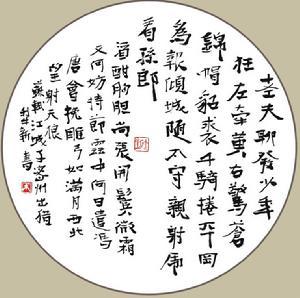 老夫聊發少年
狂左牽黄右擎蒼
錦帽貂裘千騎捲平岡
為報傾城隨太守親射虎
看孫郎
酒酣胸膽尚張開鬢微霜
又何妨持節雲中何日遣馮
唐會挽雕弓如满月西北
望射天狼
蘇軾江城子密州出猎
新書